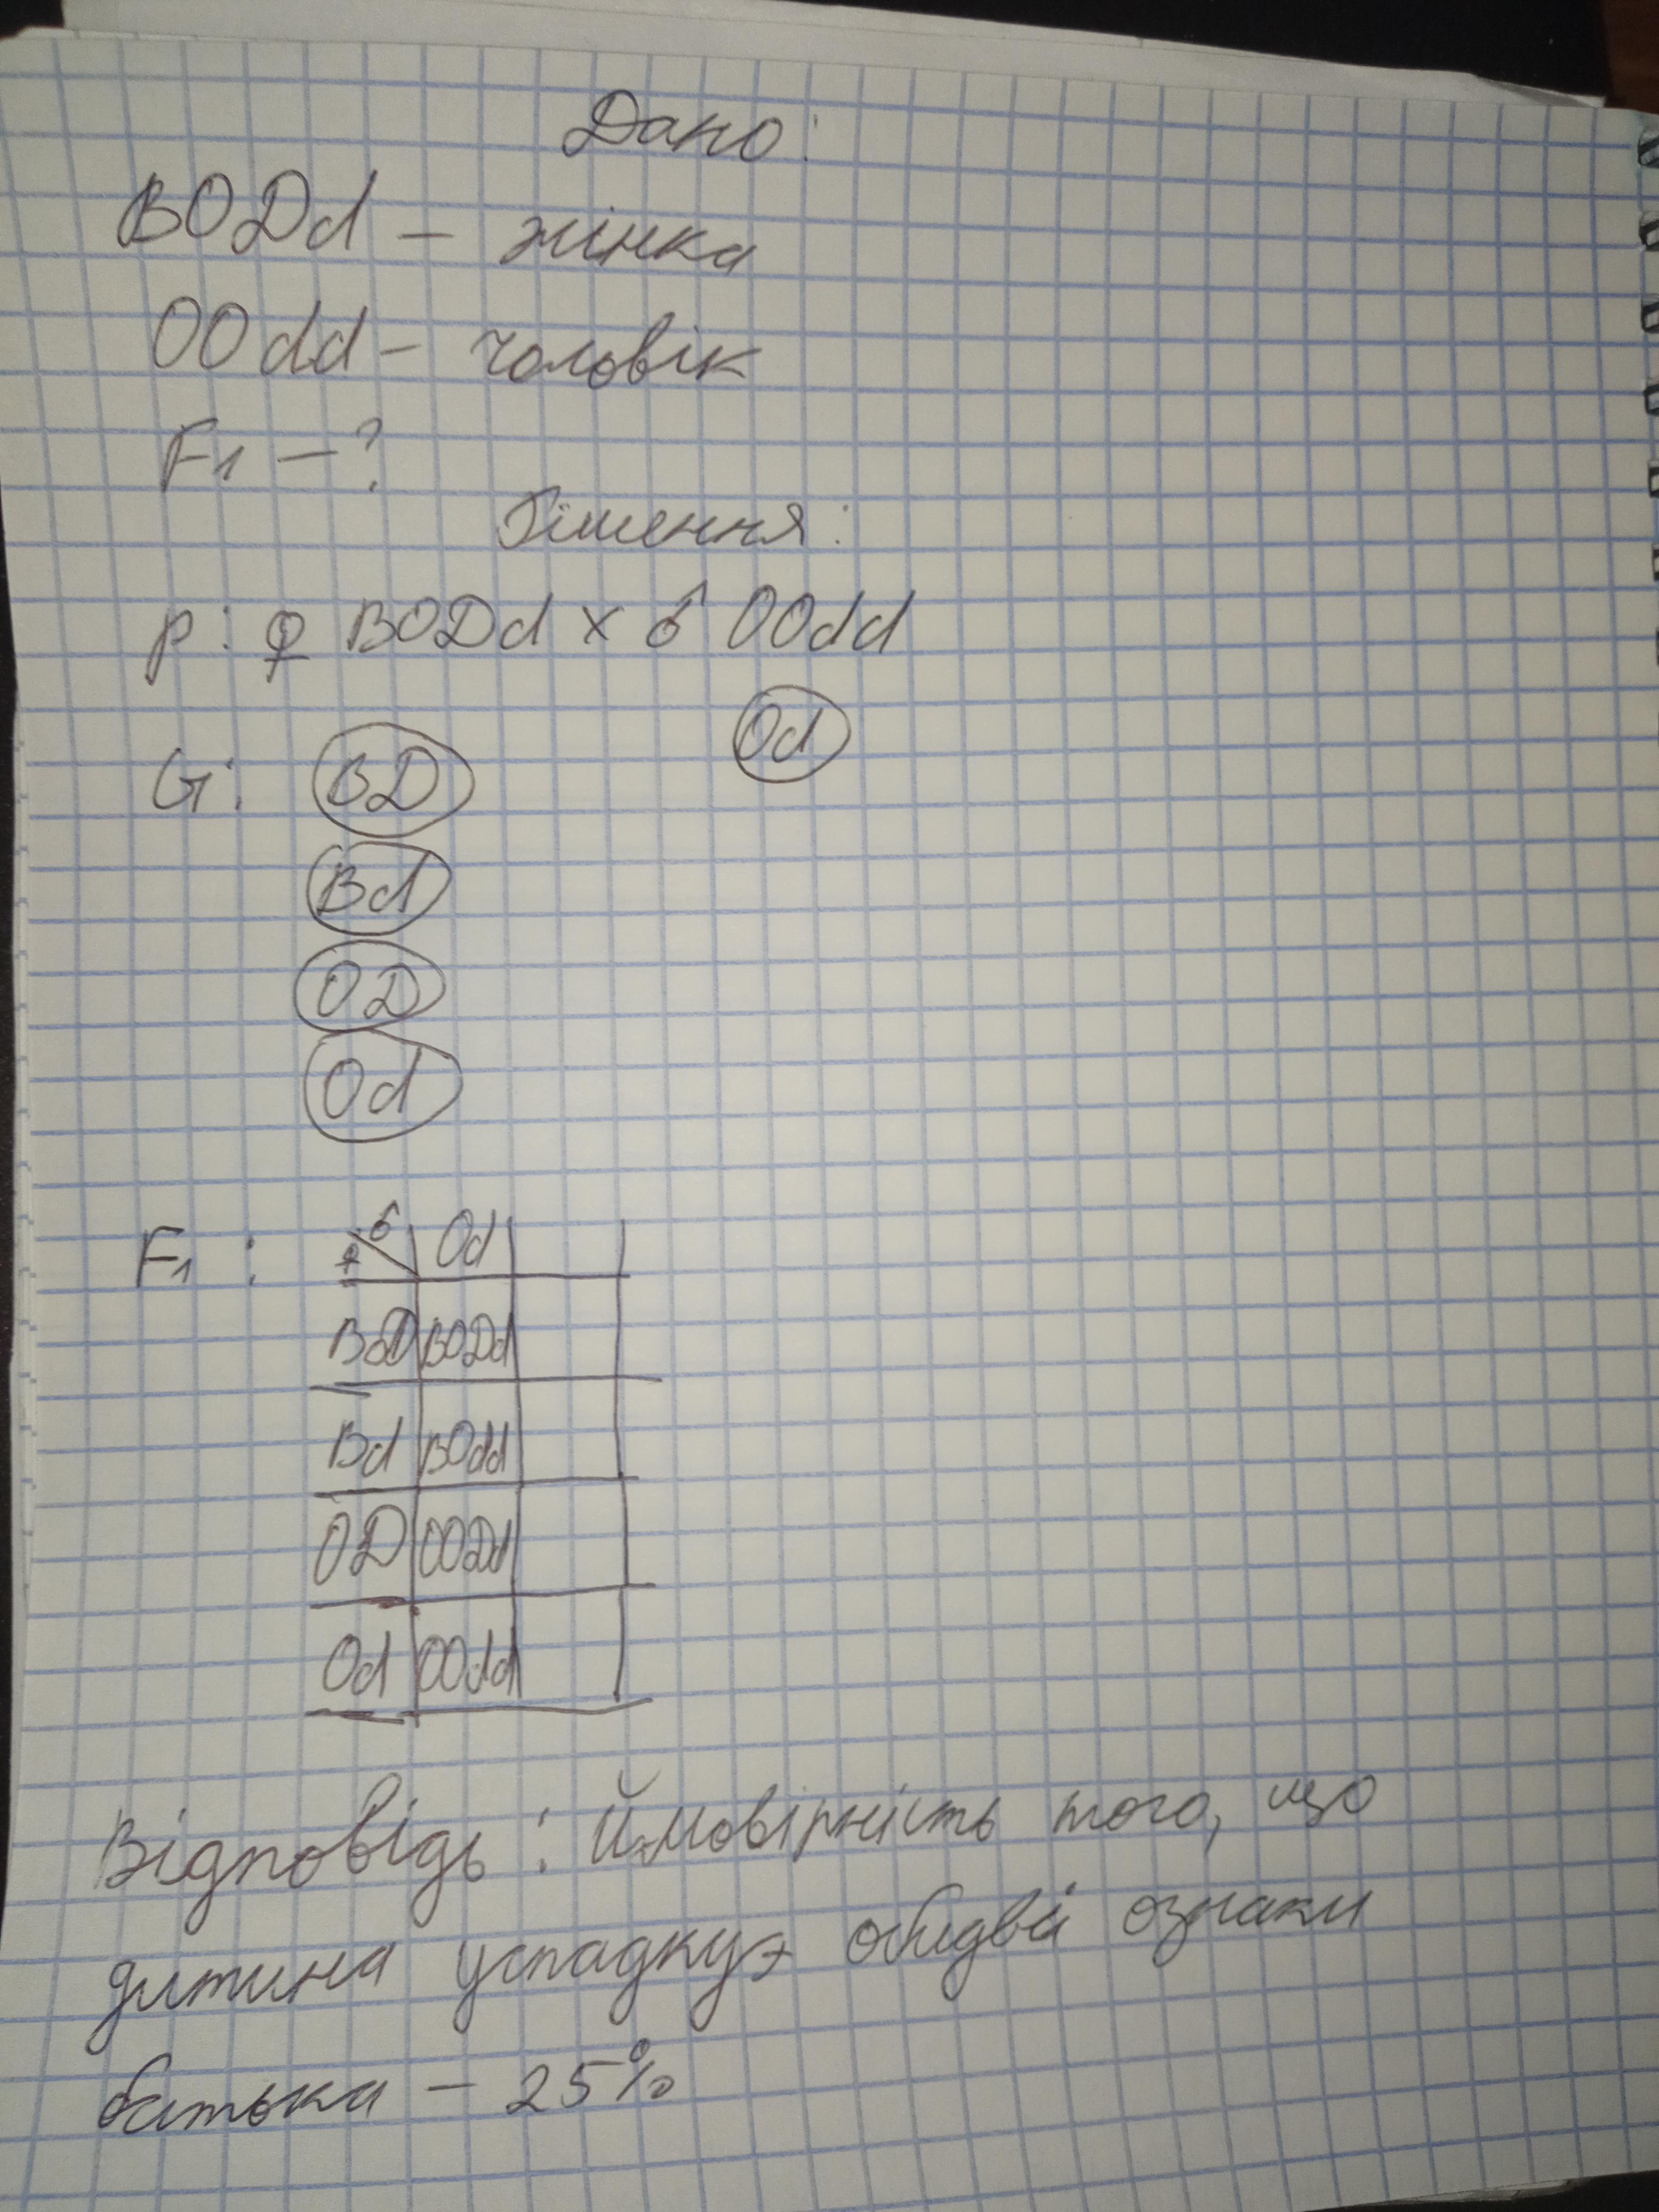 Дано:
BODd – жінка
OOdd – чоловік
F1 – ?
Рішення:
p: ♀ BODd × ♂ OOdd
G: BD Od
Bd
OD
Od
F1: ♀ ♂ Od
BD BODd
Bd BOdd
OD OODd
Od OOdd
Відповідь: ймовірність того, що
дитина успадкує обидві ознаки
батька – 25%